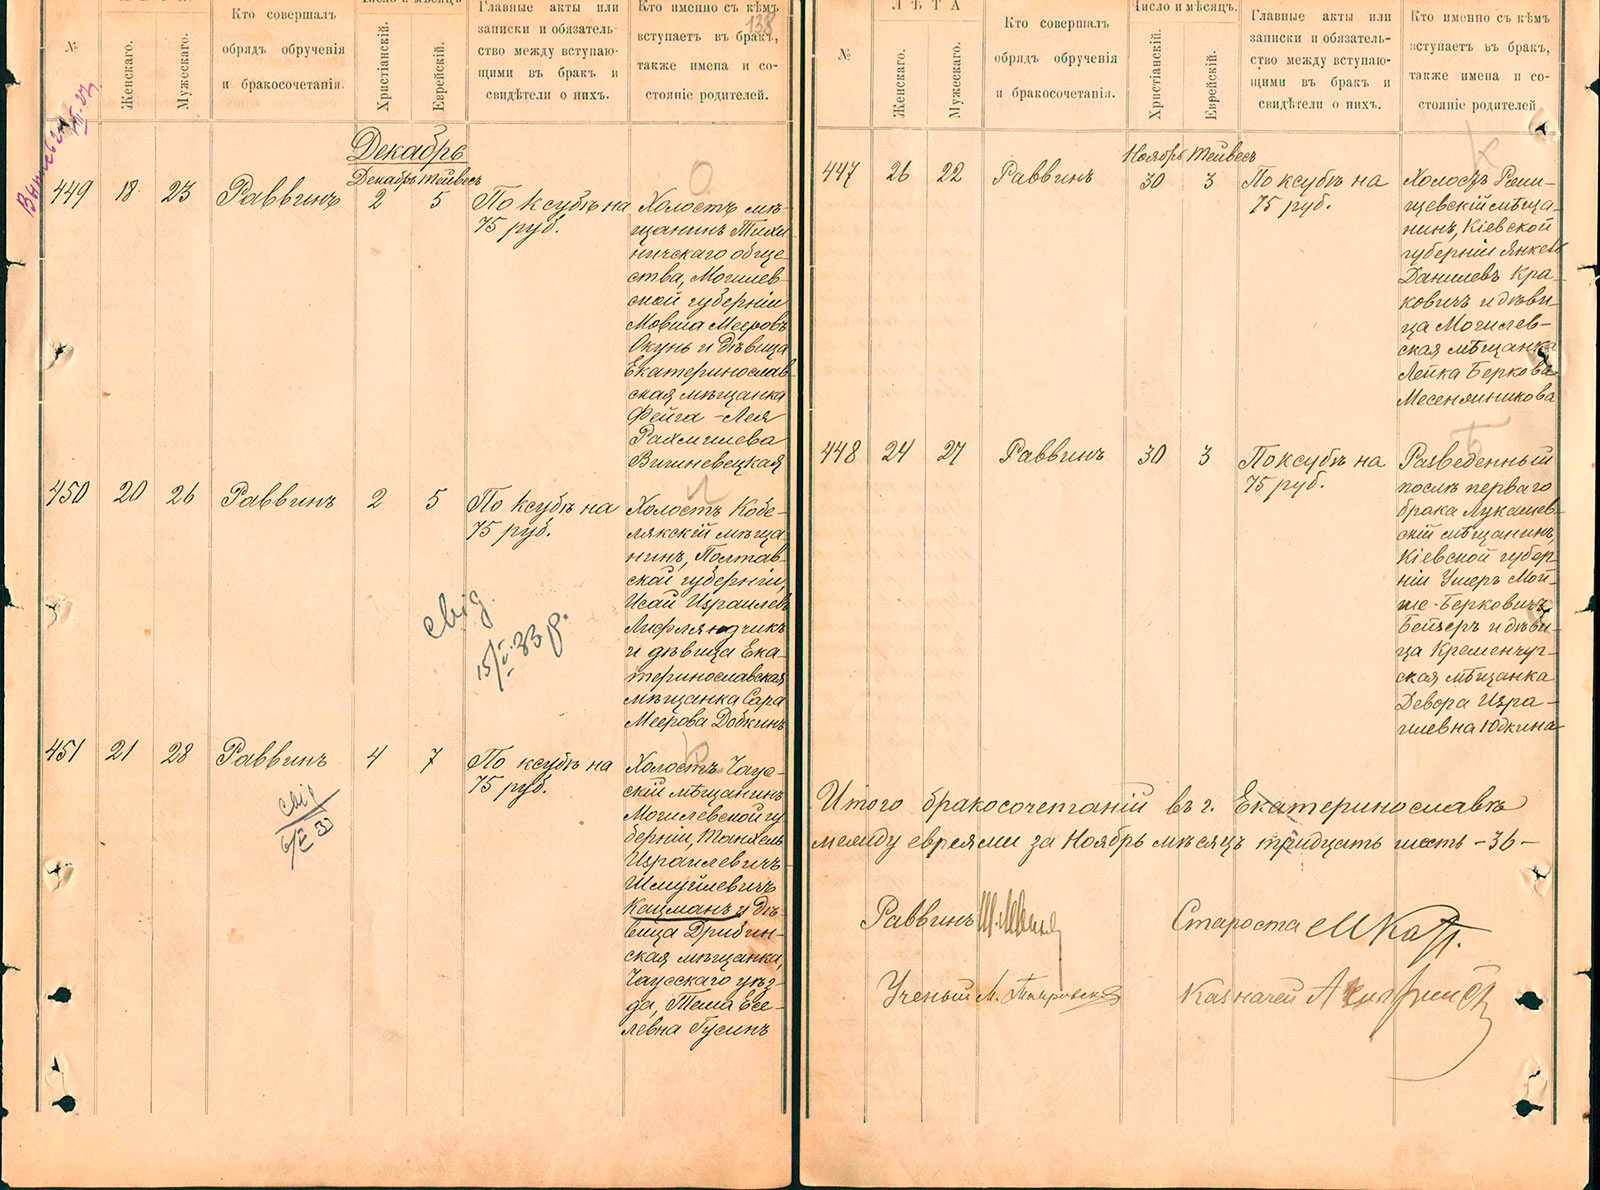 Число и мѣсяцъ
№
Женскаго.
Мужескаго.
Кто совершалъ
обрядъ обрученія
и бракосочетанія.
Христіанскій.
Еврейскій.
Главные акты или
записки и обязатель-
ство между вступаю-
щими въ бракъ и
свидѣтели о нихъ.
Кто именно съ кѣмъ
вступаетъ въ бракъ,
также имена и со-
стояніе родителей.
138
Декабрь
Декабрь Тейвесъ
О
449 18 23 Раввинъ 2 5
По ксубѣ на
75 руб.
Холостъ мѣ-
щанинъ Тихи-
ничскаго обще-
ства, Могилев-
ской губерніи
Мовша Мееровъ
Окунь и дѣвица
Екатеринослав-
ская мѣщанка
Фейга-Лея
Рахмилева
Вишневецкая
450 20 26 Раввинъ 2 5
По ксубѣ на
75 руб.
Л
Холостъ Кобе-
лякскій мѣща-
нинъ, Полтав-
ской губерніи,
Исай Израилевъ
Лифляндчикъ
и дѣвица Ека-
теринославская
мѣщанка Сара
Меерова Добкинъ
свід.
15/V 33 р.
451 21 28 Раввинъ 4 7
По ксубѣ на
75 руб.
К
Холостъ Чаус-
скій мѣщанинъ
Могилевской гу-
берніи, Танхель
Израилевичъ
Шмуйлевичъ
Кацманъ и дѣ-
вица Дрибин-
ская мѣщанка,
Чаусскаго уѣз-
да, Тема Есе-
левна Гусинъ
свід
ЛѢТА
Число и мѣсяцъ.
№
Женскаго.
Мужескаго.
Кто совершалъ
обрядъ обрученія
и бракосочетанія.
Христіанскій.
Еврейскій.
Главные акты или
записки и обязатель-
ство между вступаю-
щими въ бракъ и
свидѣтели о нихъ.
Кто именно съ кѣмъ
вступаетъ въ бракъ,
также имена и со-
стояніе родителей
Ноябрь Тейвесъ
К
447 26 22 Раввинъ 30 3
По ксубѣ на
75 руб.
Холостъ Ржи-
щевскій мѣща-
нинъ, Кіевской
губерніи Янкель
Данилевъ Кра-
ковичъ и дѣви-
ца Могилев-
ская мѣщанка
Лейка Беркова
Месенжникова
448 24 27 Раввинъ 30 3
По ксубѣ на
75 руб.
Б
Разведенный
послѣ перваго
брака Лукашев-
скій мѣщанинъ,
Кіевской губер-
ніи Ушеръ Мой-
ше-Берковичъ
Бейзеръ и дѣви-
ца Кременчуг-
ская мѣщанка
Девора Изра-
илевна Юдкина
Итого бракосочетаній въ г. Екатеринославѣ
между евреями за Ноябрь мѣсяцъ тридцать шесть -36-
Раввинъ
Староста
Ученый
Казначей